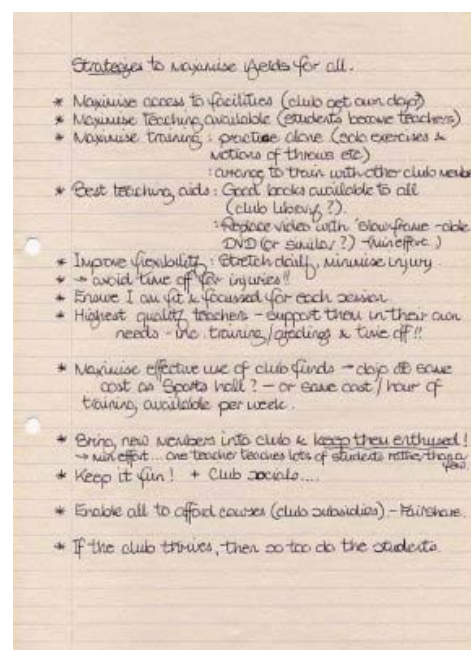 Strategies to Maximise Yields for all.
* Maximise access to facilities (club get own dojo?)
* Maximise Teaching available (students become teachers)
* Maximise training : practise alone (solo exercises &
motions of throws etc)
: arrange to train with other club members
* Best teaching aids : Good books available to all
(club library ?).
: Replace video with 'slowframe'-able
DVD (or similar?) - (min effort.)
* Improve flexibility : Stretch daily, minimise injury.
* → avoid time off for injuries!!
* Ensure I am fit & focussed for each session
* Highest quality teachers - support them in their own
needs - inc. training/gradings & time off!!
* Maximise effective use of club funds → dojo @ same
cost as Sports hall? - or same cost/hour of
training available per week.
* Bring new members into club & keep them enthused!
→ min effort... one teacher teaches lots of students rather than a few
* Keep it fun! + Club socials....
* Enable all to afford courses (club subsidies) - Fairshare.
* If the club thrives, then so too do the students.